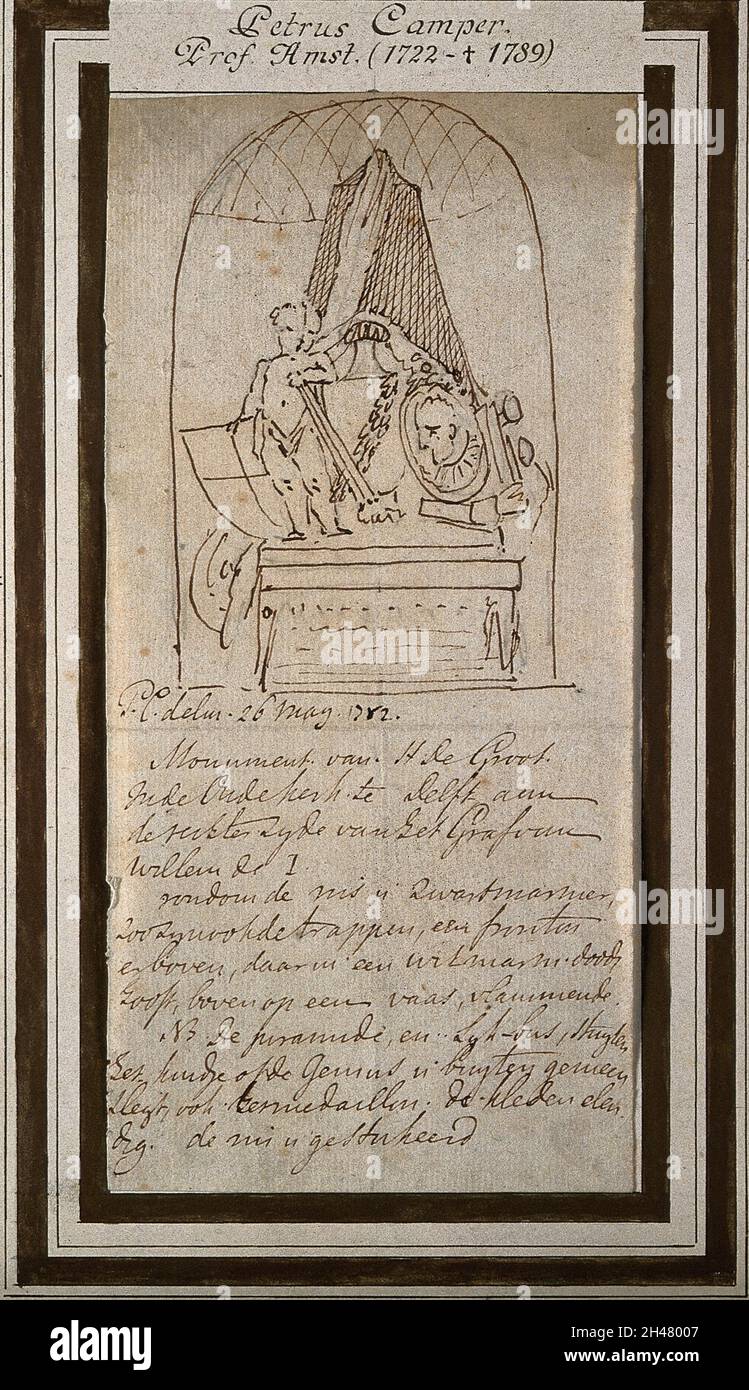 Petrus Camper.
Prof. Amst. (1722 - † 1789)
P.C. delin. 26 May. 1782.
Monument. van. H de Groot.
In de Oude kerk. te Delft aan
de rechter zyde van het Graf van
Willem de I
rondom de nis is zwart marmer,
zoo zyn ook de trappen, een fronton
er boven, daar in een wit marm. doods
hooft, boven op een vaas, vlammende.
NB De piramide, en Lyk-bus,
het kindje of de Genius is buyten gemeen
slegt, ook het medaillon. de kleden elen-
dig. de nis is gestukeerd
alamy
a
alamy
Image ID: 2H48007
www.alamy.com